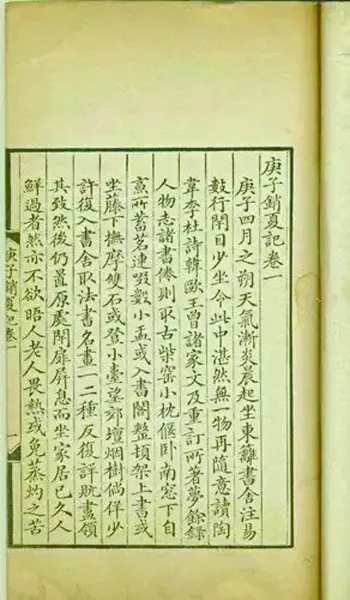 庚子銷夏記卷一
庚子四月之朔天氣漸炎晨起坐東籬書舍注易
數行閉目少坐令此中湛然無一物再隨意讀陶
韋李杜詩韓歐王曾諸家文及重訂所著夢餘錄
人物志諸書倦則取古柴窑小枕偃卧南窓下自
烹所蓄茗連啜數小盂或入書閣整頓架上書或
坐藤下撫摩雙石或登小臺望郊壇烟樹徜徉少
許復入書舍取法書名畫一二種反復詳玩盡領
其致然後仍置原處閉扉屏息而坐家居已久人
鮮過者然亦不欲晤人老人畏熱或免蒸灼之苦
庚子銷夏記卷一
一